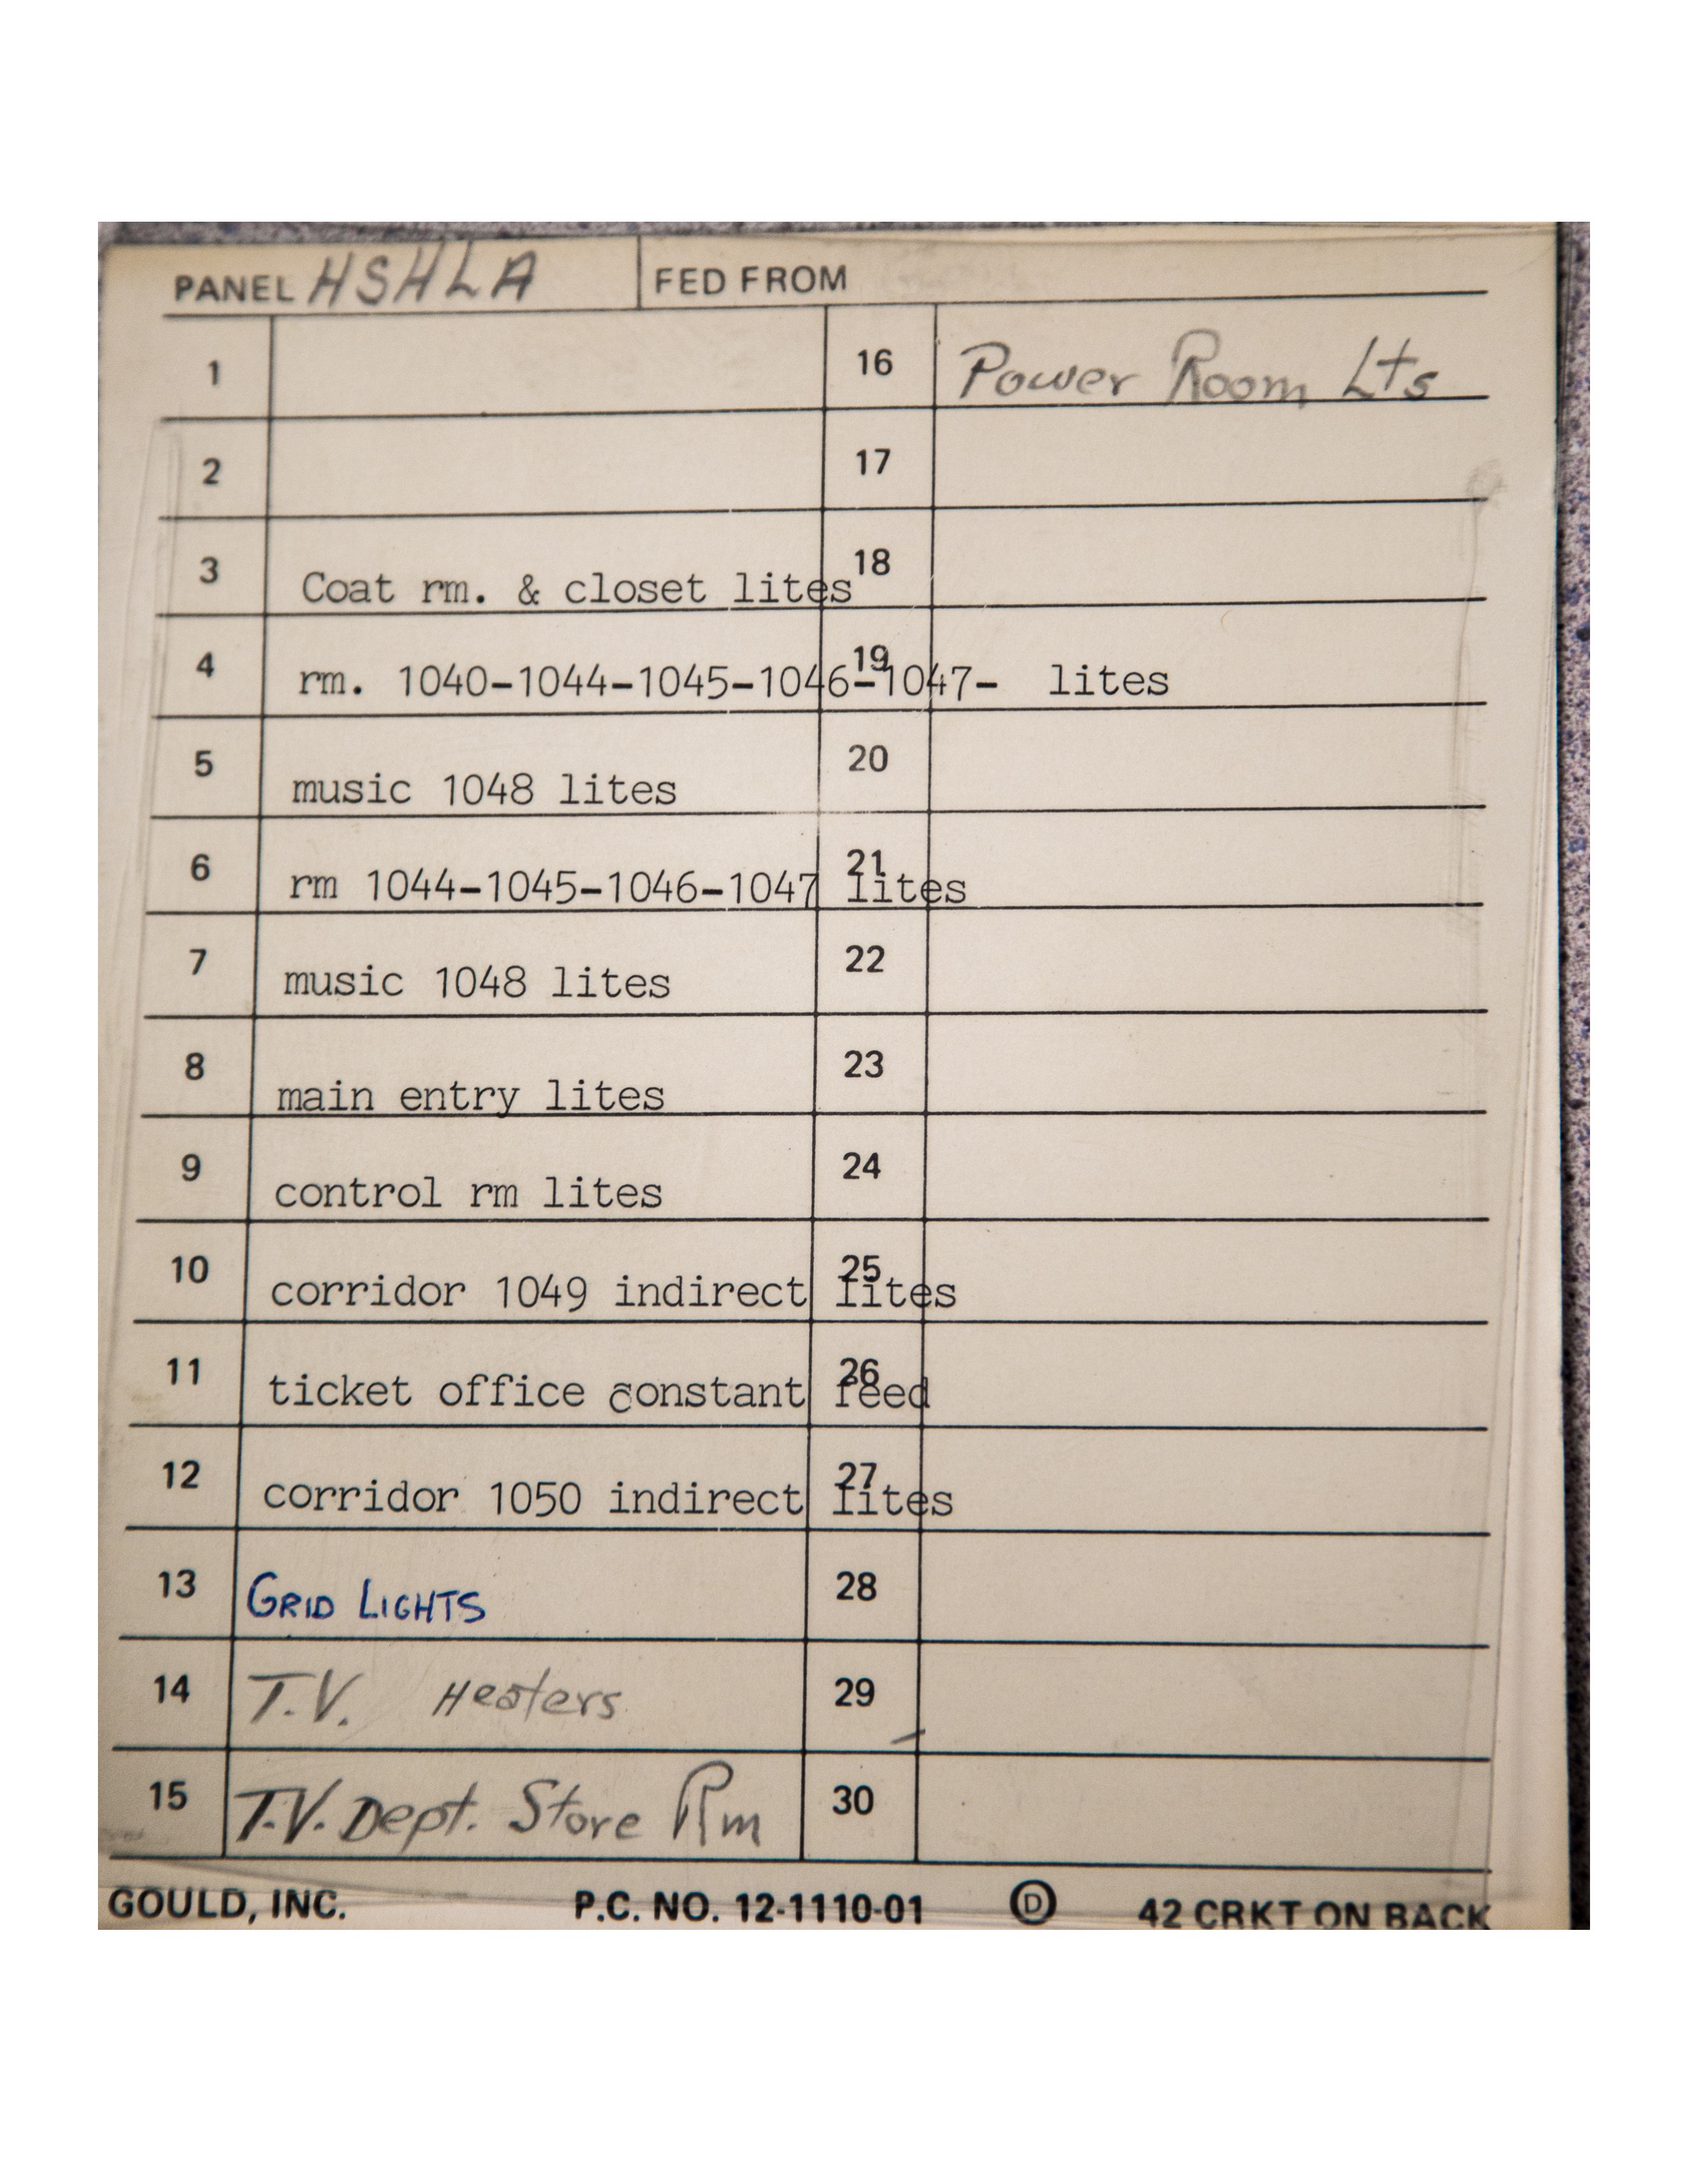 PANEL HSHLA FED FROM
1 16 Power Room Lts
2 17
3 Coat rm. & closet lites 18
4 rm. 1040-1044-1045-1046-1047- lites 19
5 music 1048 lites 20
6 rm 1044-1045-1046-1047 lites 21
7 music 1048 lites 22
8 main entry lites 23
9 control rm lites 24
10 corridor 1049 indirect lites 25
11 ticket office constant feed 26
12 corridor 1050 indirect lites 27
13 GRID LIGHTS 28
14 T.V. Heaters 29
15 T.V. Dept. Store Rm 30
GOULD, INC. P.C. NO. 12-1110-01 D 42 CRKT ON BACK